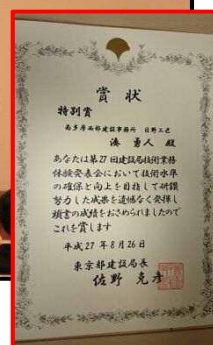 賞状
特別賞
南多摩西部建設事務所 日野工区
湊 勇人 殿
あなたは第27回建設局技術業務
体験発表会において技術水準
の確保と向上を目指して研鑽
努力した成果を遺憾なく発揮し
頭書の成績をおさめられましたので
これを賞します
平成27年8月26日
東京都建設局長
佐野 克彦